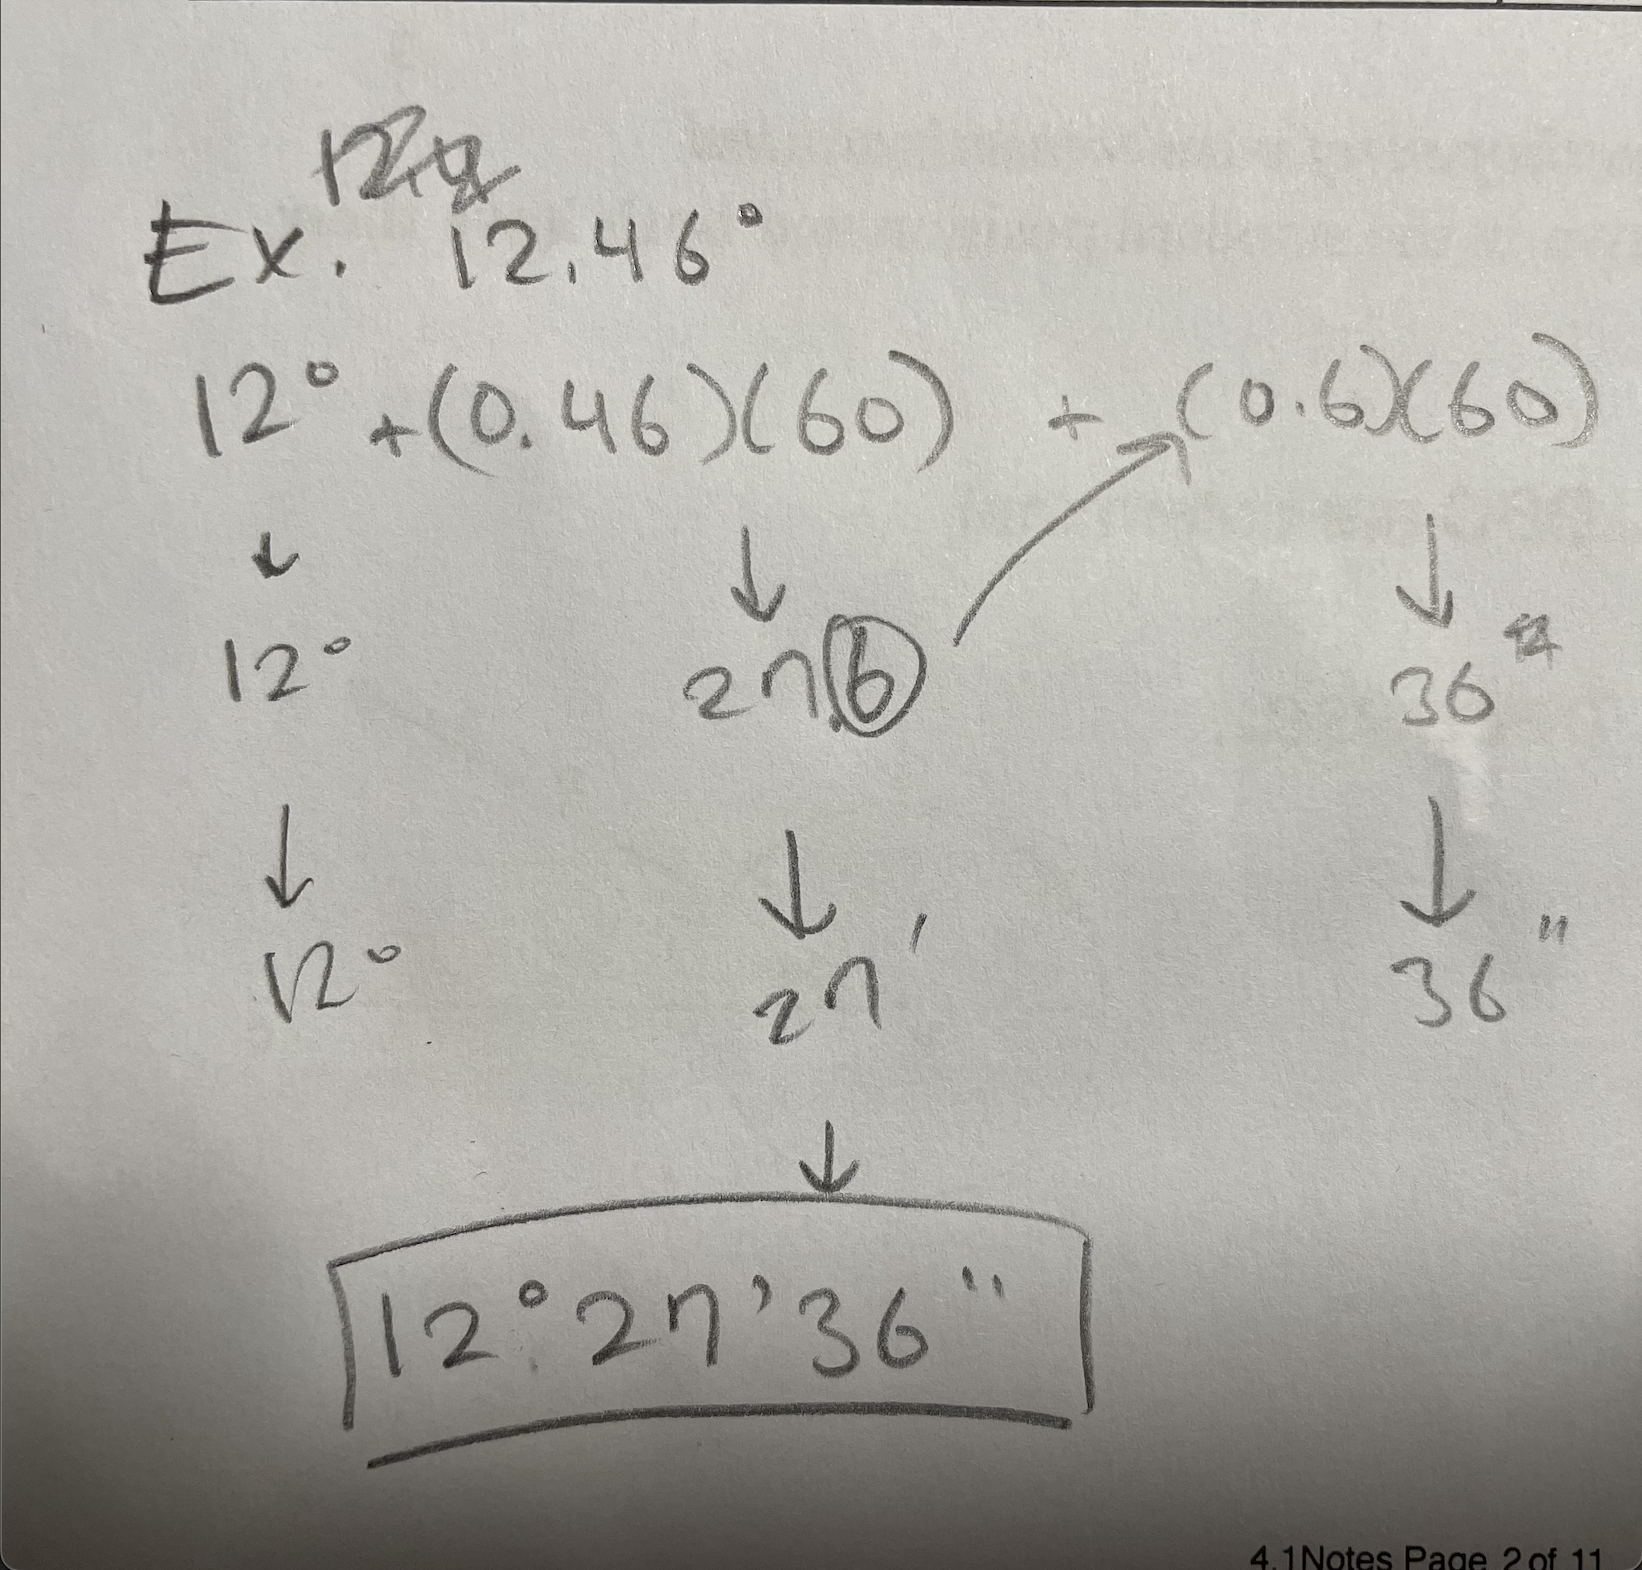 Ex. 12.46°
12° + (0.46)(60) + (0.6)(60)
12° 27.6 36
12° 27' 36"
12° 27' 36"
4.1Notes Page 2 of 11